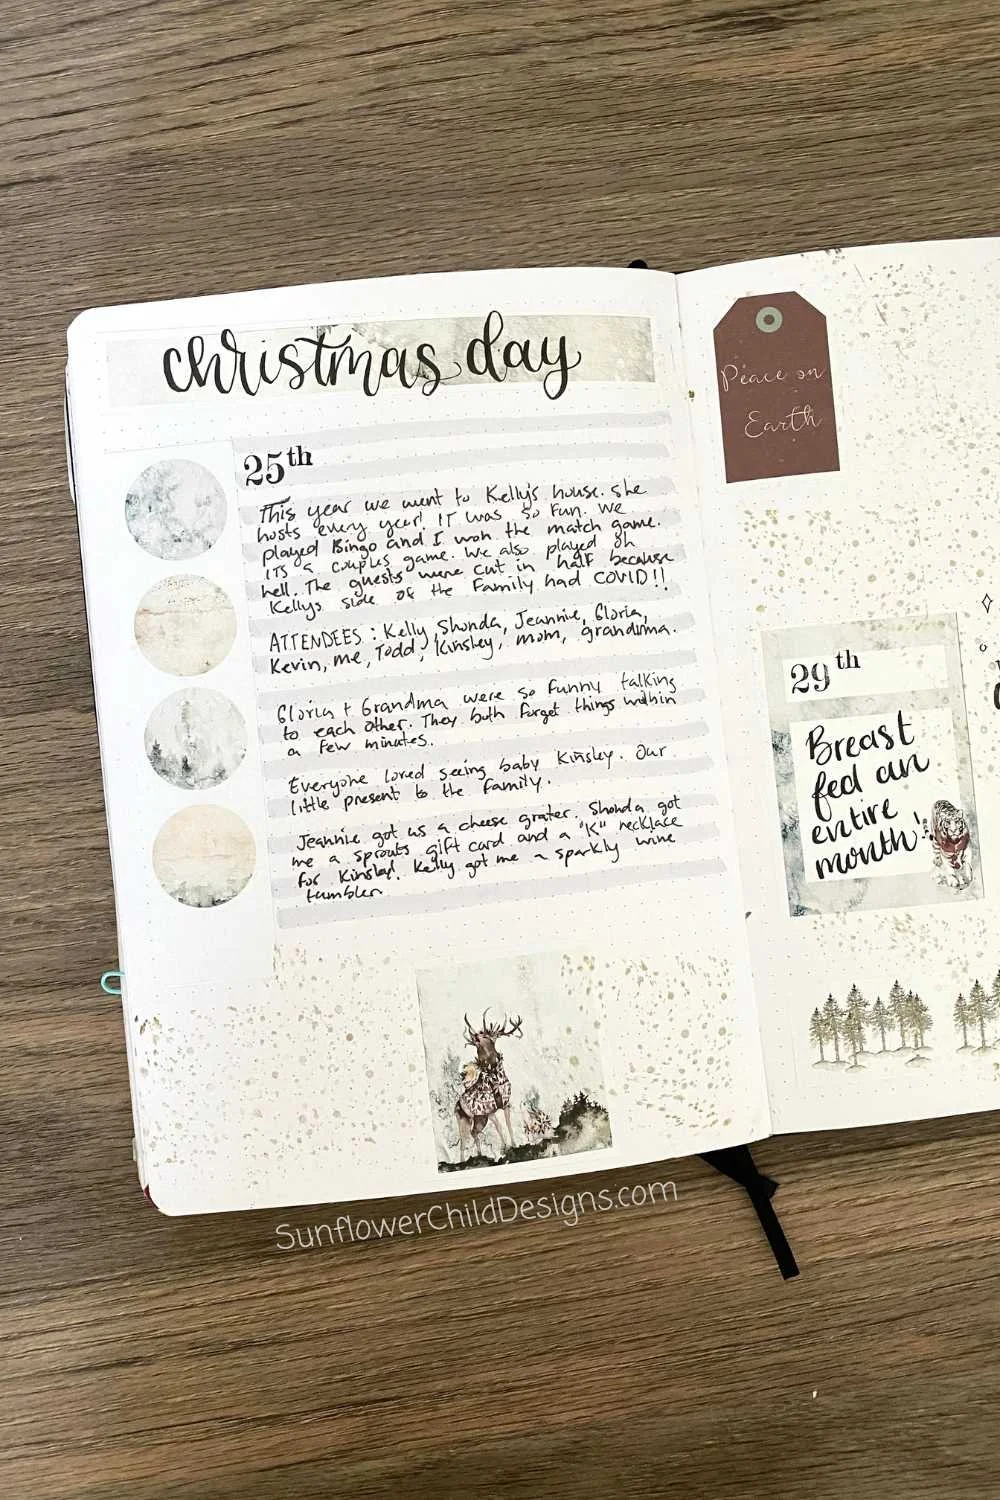 christmas day
25th
This year we went to Kelly's house. She
hosts every year! IT was so fun. We
played Bingo and I won the match game.
ITS a couples game. We also played oh
hell. The guests were cut in half because
Kellys side of the Family had COVID!!
ATTENDEES: Kelly, Shonda, Jeannie, Gloria,
Kevin, me, Todd, Kinsley, mom, grandma.
Gloria + Grandma were so funny talking
to each other. They both forget things within
a few minutes.
Everyone loved seeing baby Kinsley. Our
little present to the family.
Jeannie got us a cheese grater. Shonda got
me a sprouts gift card and a "K" necklace
for Kinsley. Kelly got me a sparkly wine
tumbler.
Peace on
Earth
29th
Breast
fed an
entire
month!
SunflowerChildDesigns.com